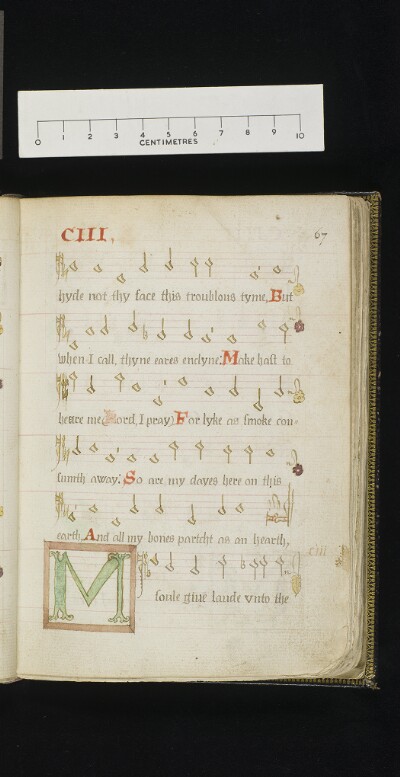 0 1 2 3 4 5 6 7 8 9 10
CENTIMETRES
CIII.
67
hyde not thy face this troublous tyme, But
when I call, thyne eares enclyne: Make hast to
heare me (Lord, I pray) For lyke as smoke con-
sumth away: So are my dayes here on this
earth, And all my bones partcht as an hearth,
ciii
M
soule giue laude vnto the